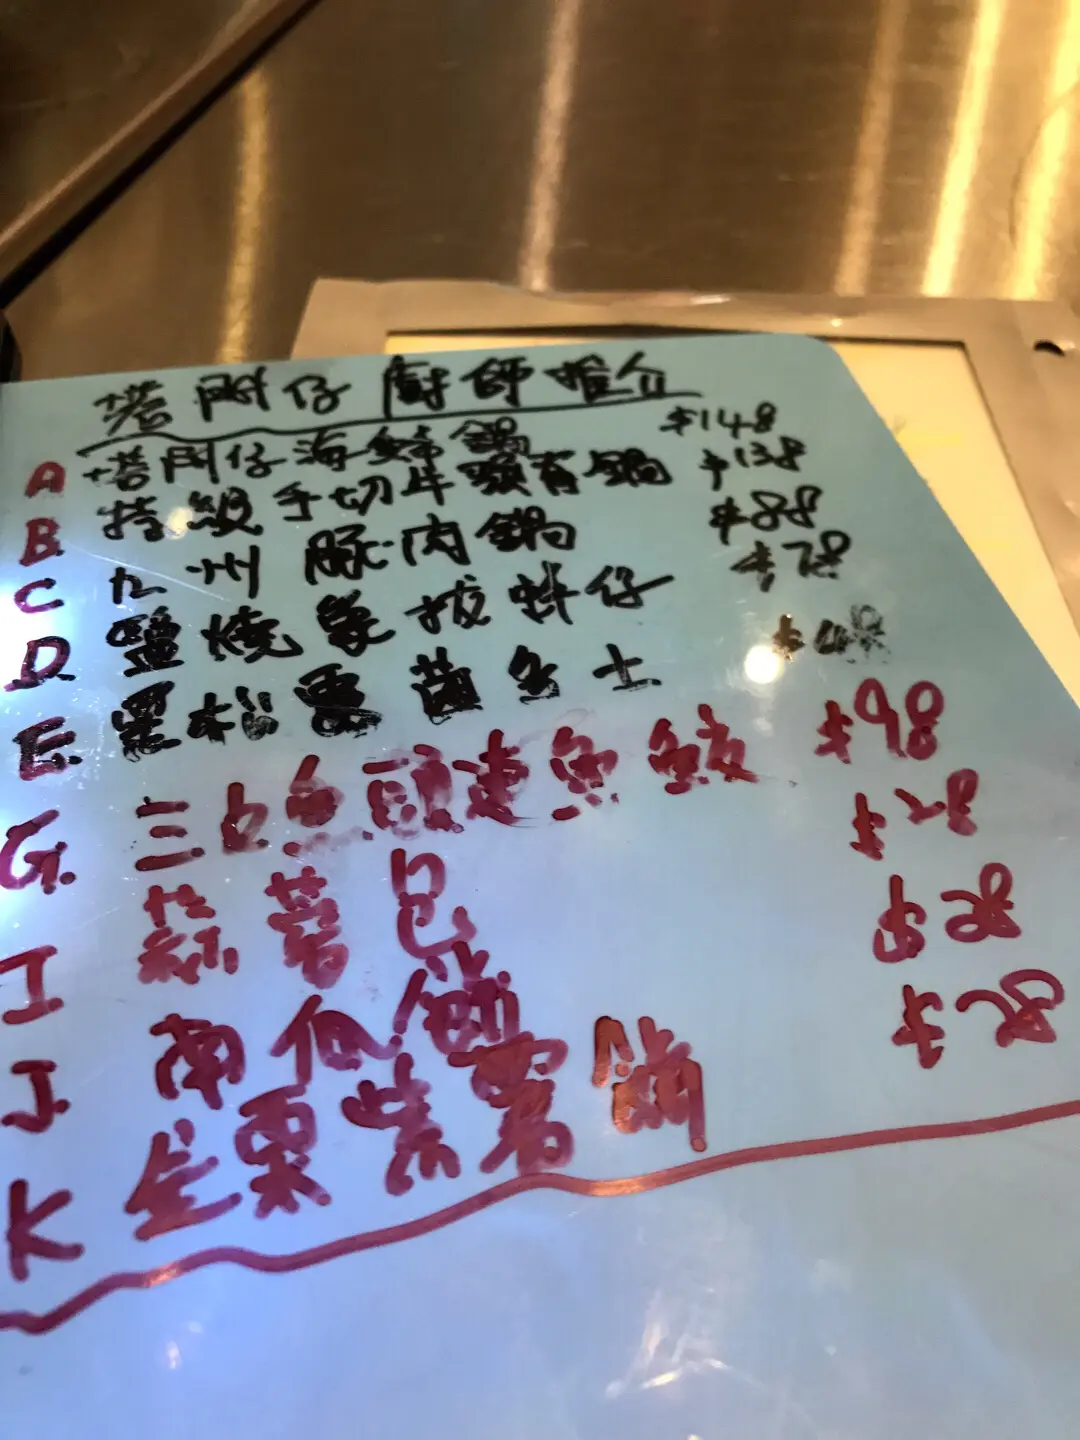 塔門仔廚師推介
A 塔門仔海鮮鍋 $148
B. 特級手切牛頸脊鍋 $138
C 九州豚肉鍋 $88
D. 鹽燒象拔蚌仔 $78
E. 黑松露菌多士 $48
G. 三文魚頭連魚鮫 $98
I 蒜薯包
J. 南瓜餅
K 金栗紫薯餅